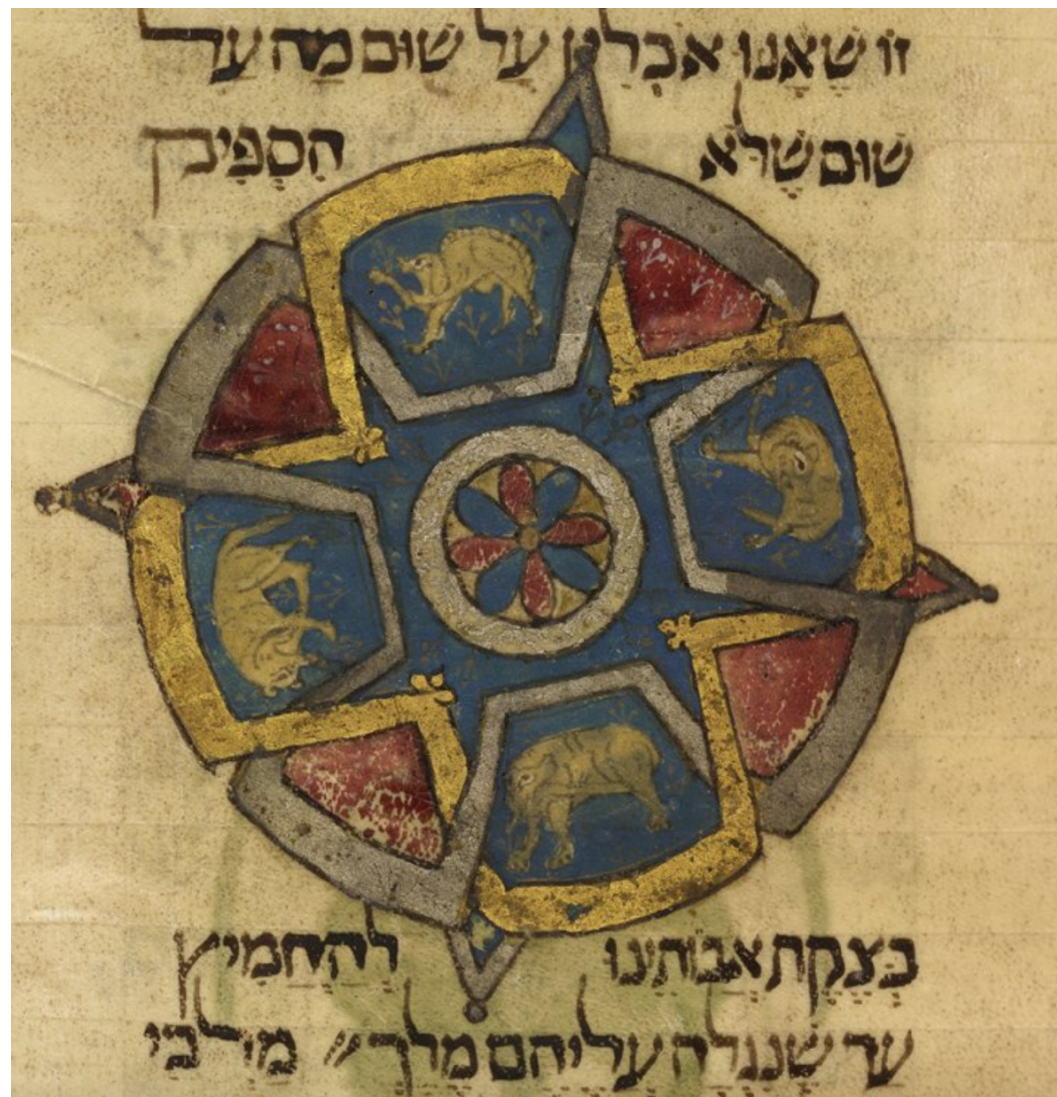 זוֹ שֶׁאָנוּ אֹכְלִין עַל שׁוּם מַה עַל
שׁוּם שֶׁלֹא הִסְפִּיק
בְּצֵקָת אֲבוֹתֵינוּ לְהַחֲמִיץ
עַד שֶׁנִגְלָה עֲלֵיהֶם מֶלֶךְ // מַלְכֵי